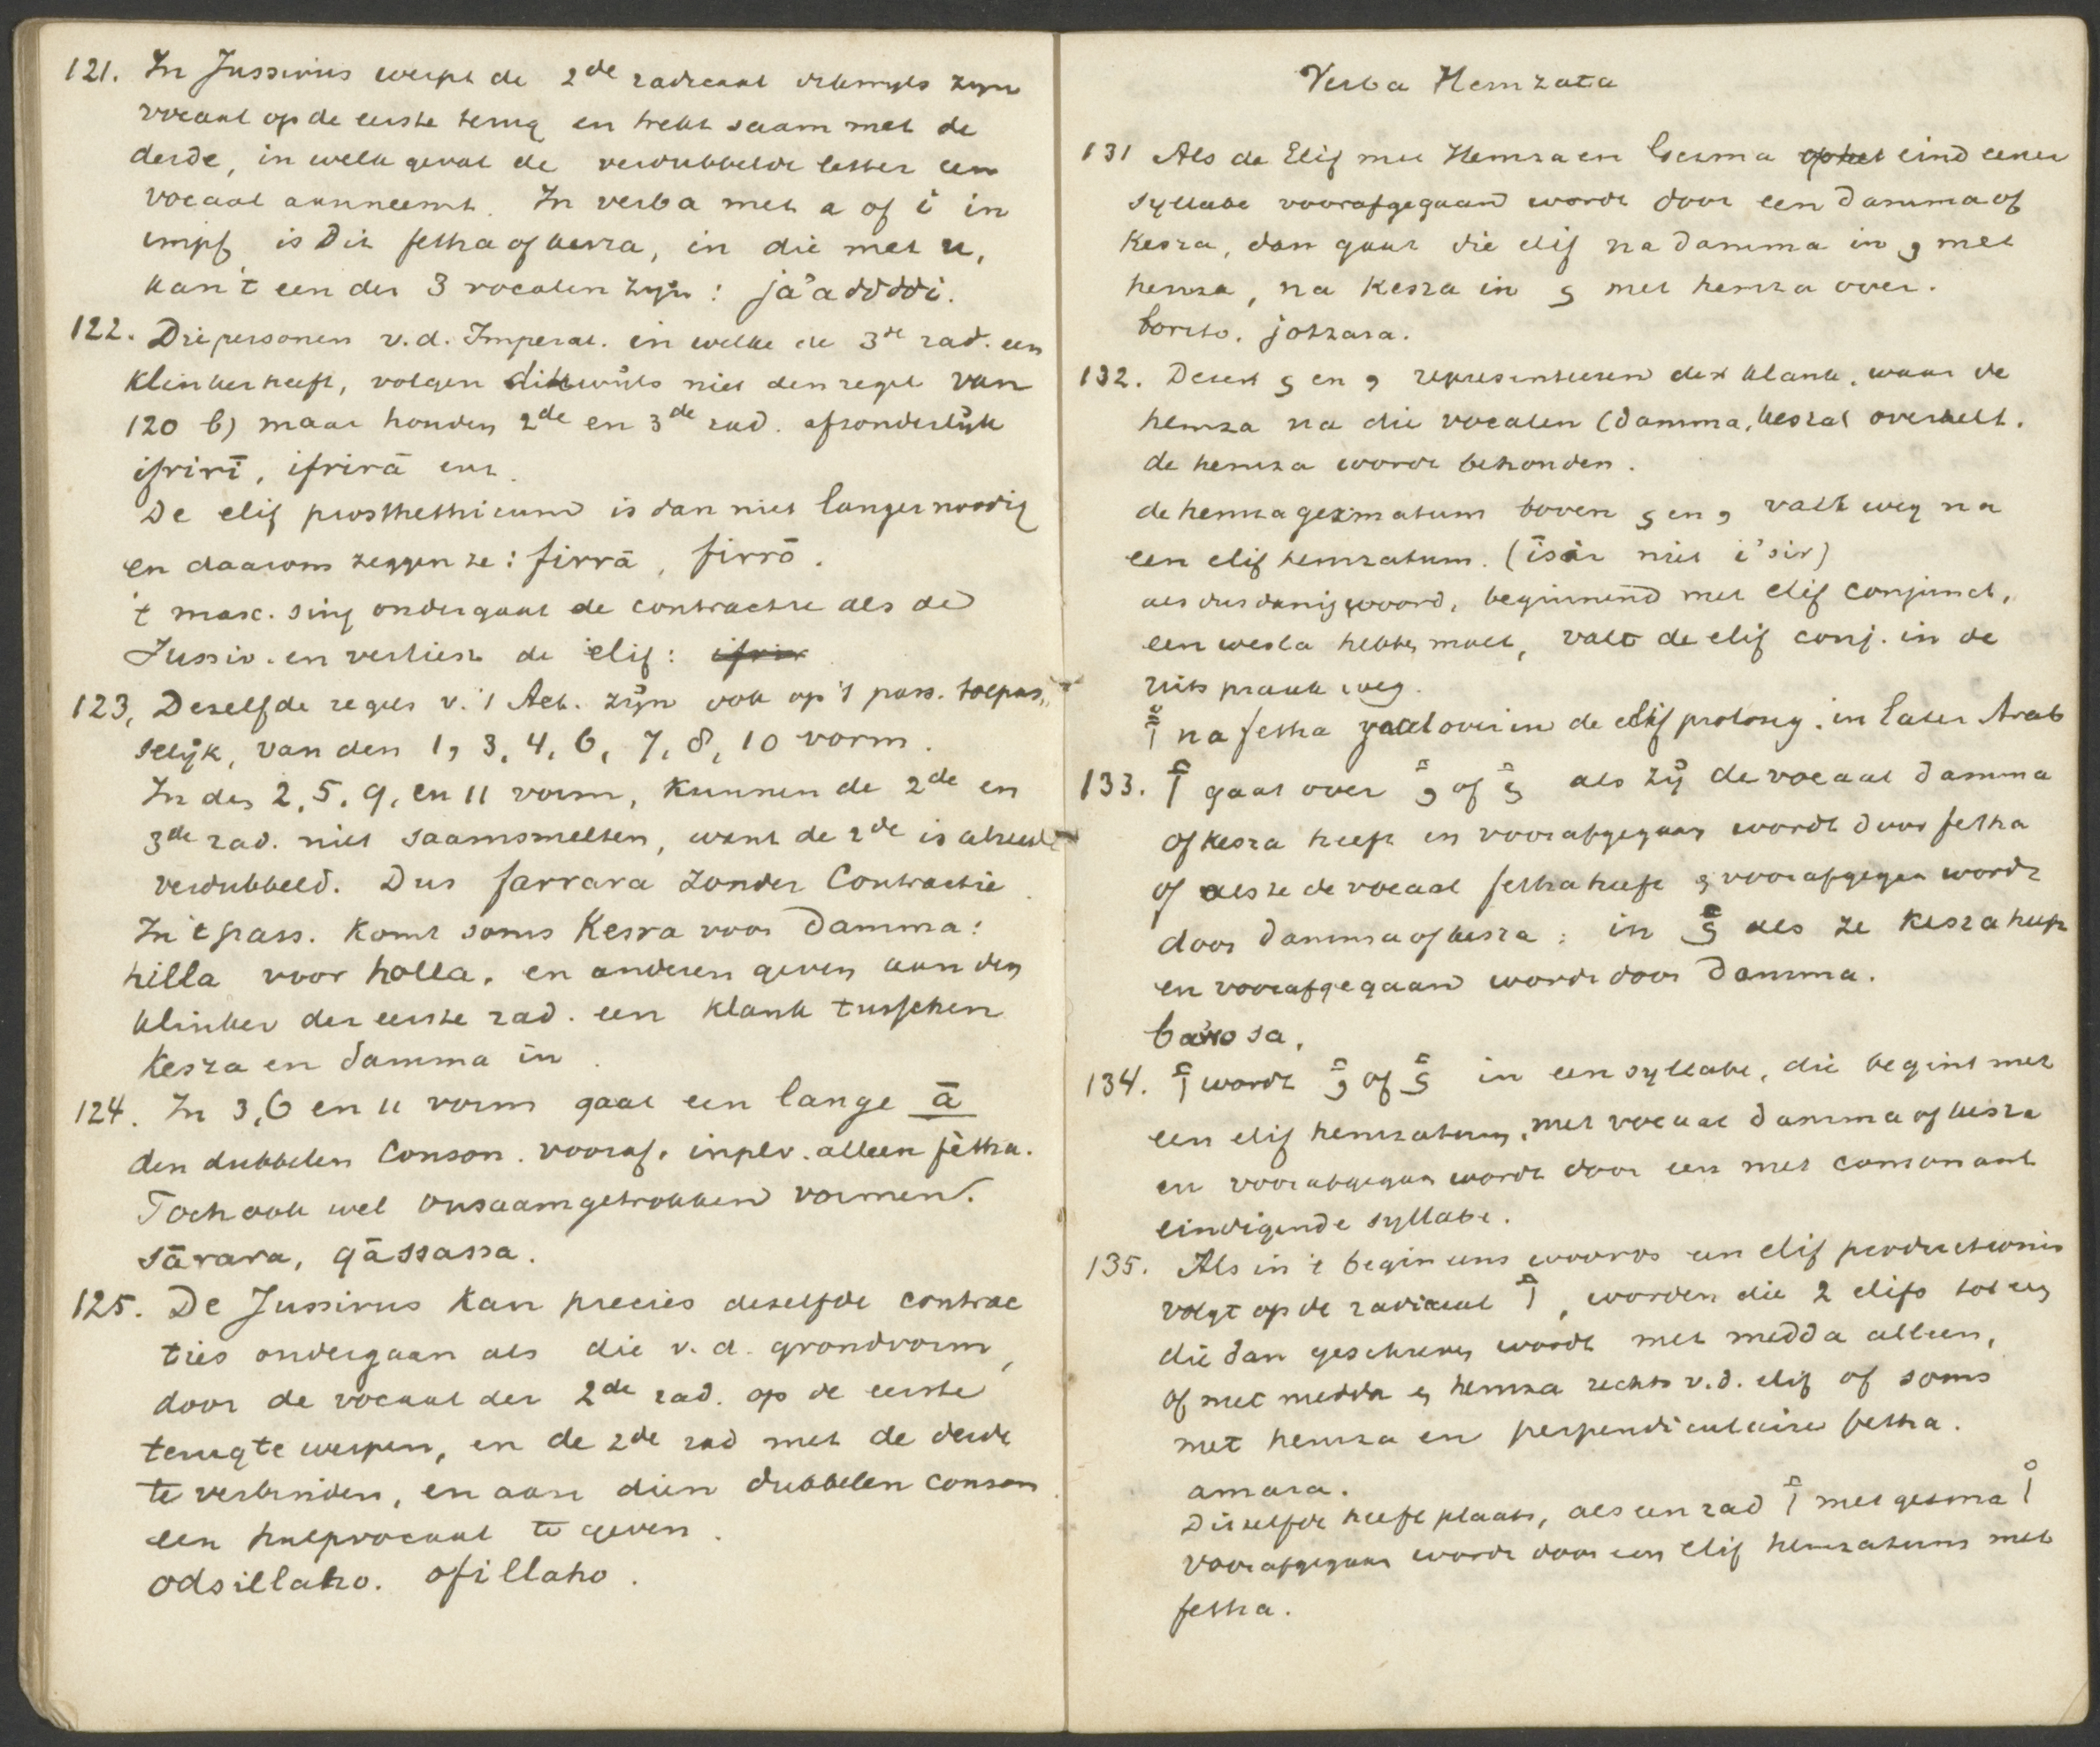 121. In Jussivus werpt de 2de radicaal dikwyls zyn
vocaal op de eerste terug en trekt saam met de
derde, in welk geval de verdubbelde letter een
vocaal aanneemt. In verba met a of i in
impf is dit fetha of kesra, in die met u,
kan 't een der 3 vocalen zyn: ja'adddi.
122. Die personen v.d. Imperat. in welke de 3de rad. een
klinker heeft, volgen dikwijls niet den regel van
120 b) maar houden 2de en 3de rad. afzonderlijk
ifrirī, ifrirā enz.
De elif prosthethicum is dan niet langer noodig
en daarom zeggen ze: firrā, firrō.
't masc. sing ondergaat de contractie als de
Jussiv. en verliest de elif: ifrir
123, Dezelfde regels v. 't Act. zijn ook op 't pass. toepas„
selijk, van den 1, 3, 4, 6, 7, 8, 10 vorm.
In den 2, 5, 9, en 11 vorm, kunnen de 2de en
3de rad. niet saamsmelten, want de 2de is alreeds
verdubbeld. Dus farrara zonder Contractie
In 't pass. komt soms Kesra voor Damma:
hilla voor holla, en anderen geven aan den
klinker der eerste rad. een klank tusschen
Kesra en damma in.
124. In 3, 6 en 11 vorm gaat een lange ā
den dubbelen Conson. vooraf, in plv. alleen fètha.
Toch ook wel onsaamgetrokken vormen.
sārara, qāssassa.
125. De Jussivus kan precies dezelfde contrac
ties ondergaan als die v.d. grondvorm,
door de vocaal der 2de rad. op de eerste
terug te werpen, en de 2de rad met de derde
te verbinden, en aan dien dubbelen conson
een hulpvocaal te geven.
odsillaho. ofillaho.
Verba Hemzata
131 Als de Elif met Hemza en Gesma op het eind eener
syllabe voorafgegaan wordt door een damma of
Kesra, dan gaat die elif na damma in و met
hemza, na Kesra in ى met hemza over.
132. Deze ى en و representeeren den klank, waar de
hemza na die vocalen (damma, kesra) overhelt.
de hemza wordt behouden.
de hemza gezmatum boven ى en و valt weg na
een elif hemzatum. (īsir niet i'sir)
als dusdanig woord, beginnend met elif conjunct,
een wesla hebben moet, valt de elif conj. in de
uitspraak weg.
أْ na fetha gaat over in de elif prolong. in later Arab
133. أ gaat over ؤ of ئ als zij de vocaal damma
of kesra heeft en voorafgegaan wordt door fetha
of als ze de vocaal fetha heeft en voorafgegaan wordt
door damma of kesra: in ئ als ze kesra heeft
en voorafgegaan wordt door damma.
ba'osa,
134. أ wordt ؤ of ئ in een syllabe, die begint met
een elif hemzatum, met vocaal damma of kesra
en voorafgegaan wordt door een met consonant
eindigende syllabe.
135. Als in 't begin eens woords een elif productionis
volgt op de radicaal أ, worden die 2 elifs tot een
die dan geschreven wordt met medda alleen,
of met medda en hemza rechts v.d. elif of soms
met hemza en perpendiculaire fetha.
amara.
Ditzelfde heeft plaats, als een rad أ met gesma أْ
voorafgegaan wordt door een elif hemzatum met
fetha.